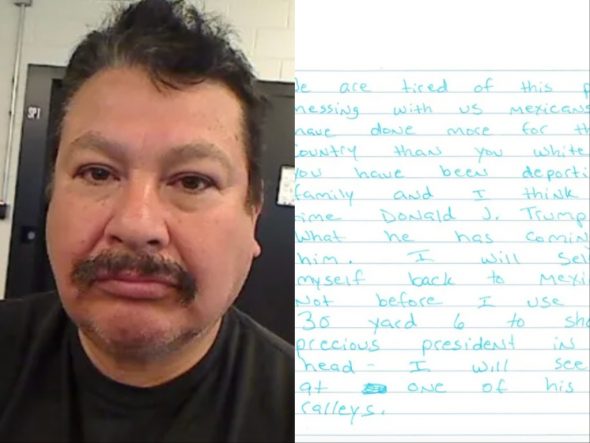 SP1
e are tired of this p
nessing with us mexicans
have done more for th
ountry than you white
You have been deporti
family and I think
ime Donald J. Trump
What he has comin
him. I will Sel
myself back to mexi
Not before I use
30 yard 6 to sho
precious president in
head - I will see
at one of his
ralleys.